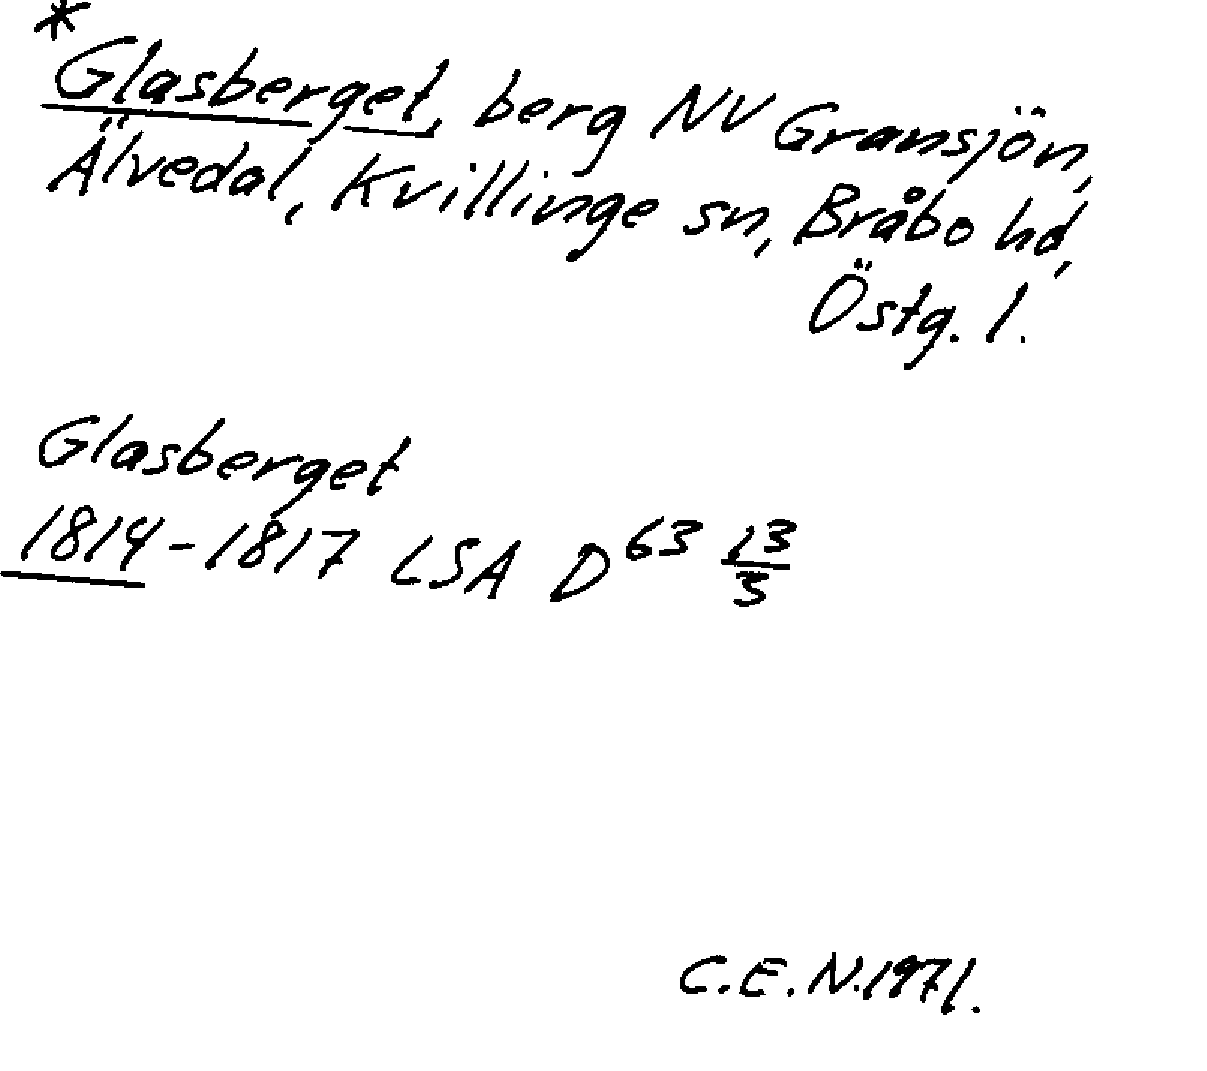 *
Glasberget, berg NV Gransjön,
Älvedal, Kvillinge sn, Bråbo hd,
Östg. l.
Glasberget
1814-1817 LSA D 63 13/5
C.E.N. 1971.